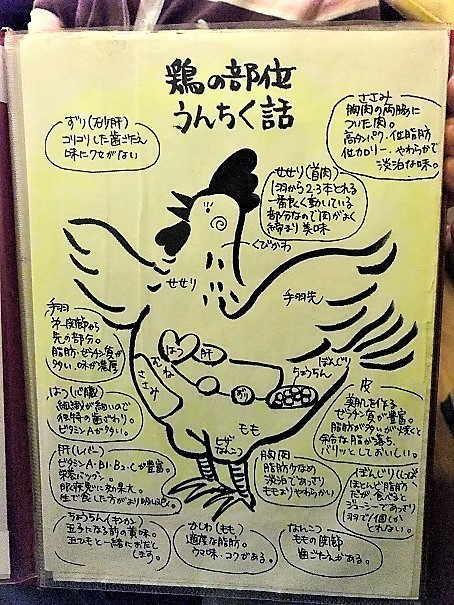 鶏の部位
うんちく話
ずり(砂肝)
コリコリした歯ごたえ
味にクセがない
ささみ
胸肉の両脇に
ついた肉。
高タンパク・低脂肪
低カロリー・やわらかで
淡泊な味。
せせり(首肉)
1羽から2-3本とれる
一番良く動いている
部分なので肉がよく
締まり美味
くびかわ
せせり
手羽先
手羽
第一関節から
先の部分。
脂肪・ゼラチン質が
多い、味が濃厚
はつ
肝
むね
ささみ
ずり
ぼんじり
ちょうちん
もも
ヒザ
なんこ
はつ(心臓)
細織が細いので
独特の歯ざわり。
ビタミンAが多い。
皮
美肌を作る
ゼラチン質が豊富。
脂肪が多いが焼くと
余分な脂が落ち、
パリッとしておいしい。
肝(レバー)
ビタミンA・B1・B2・Cが豊富。
栄養バツグン。
眼、疲れに効果大。
生で食した方がより
胸肉
脂肪少なめ
淡泊であっさり
ももよりやわらかい
ぼんじり
ほとんど脂肪
だが、食べると
ジューシーであっさり
1羽で1個しか
とれない。
ちょうちん(キンカン)
玉子になる前の黄味。
玉ひもと一緒にお出し
します。
かしわ(もも)
適度な脂肪。
ウマ味・コクがある。
なんこつ
ももの関節
歯ごたえがある。